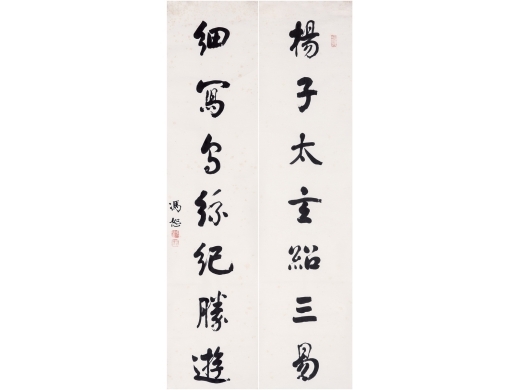 楊子太玄紹三易
細寫烏絲紀勝遊
馮恕